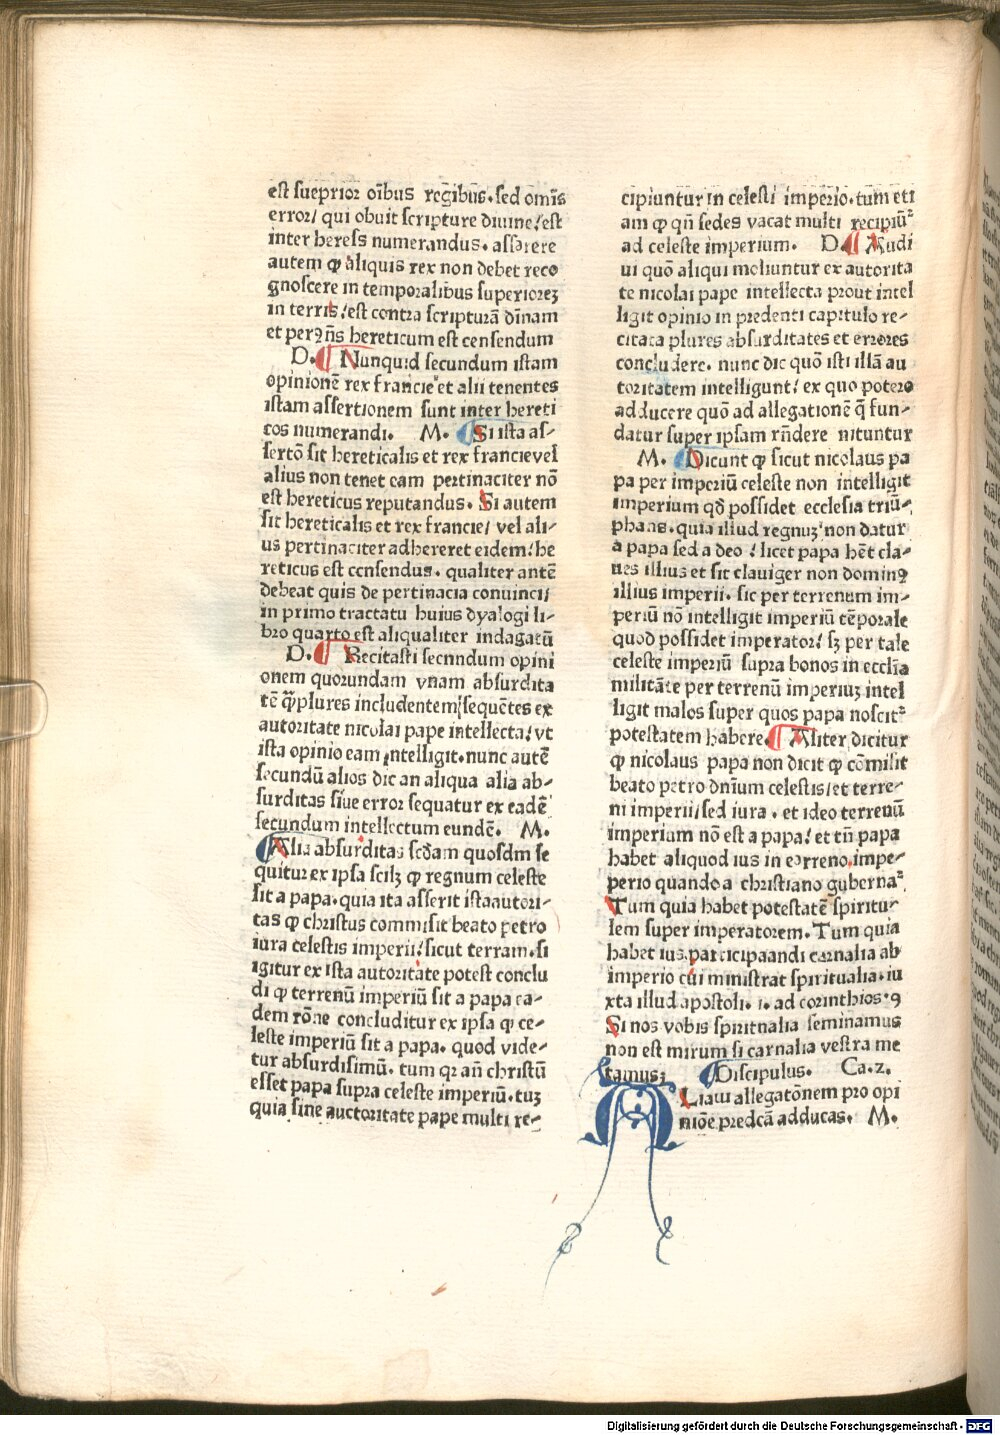 est sueprior oībus regibus. sed omīs
error/ qui obuit scripture diuine/ est
inter heress numerandus. asserere
autem ꝙ aliquis rex non debet reco
gnoscere in temporalibus superioreȝ
in terris/ est contra scripturā dīnam
et perꝯñs hereticum est censendum
D. Nunquid secundum istam
opinionē rex francie et alii tenentes
istam assertionem sunt inter hereti
cos numerandi. M. Si ista as⸗
sertō sit hereticalis et rex francievel
alius non tenet eam pertinaciter nō
est hereticus reputandus. Si autem
sit hereticalis et rex francie/ vel ali⸗
us pertinaciter adhereret eidem/ he
reticus est censendus. qualiter antē
debeat quis de pertinacia conuinci/
in primo tractatu huius dyalogi li⸗
bro quarto est aliqualiter indagatū
D. Recitasti secnndum opini
onem quorundam vnam absurdita
tē qꝫplures includentem/sequētes ex
autoritate nicolai pape intellecta/ vt
ista opinio eam intelligit. nunc autē
secundū alios dic an aliqua alia ab⸗
surditas siue error sequatur ex eadē
secundum intellectum eundē. M.
Alia absurditas scd̄am quosdm se
quitur ex ipsa scilȝ ꝙ regnum celeste
sit a papa. quia ita asserit istaautori⸗
tas ꝙ christus commisit beato petro
iura celestis imperii/ sicut terram. si
igitur ex ista autoritate potest conclu
di ꝙ terrenū imperiū sit a papa ea⸗
dem rōne concluditur ex ipsa ꝙ ce⸗
leste imperiū sit a papa. quod vide⸗
tur absurdisimū. tum qꝛ añ christū
esset papa supra celeste imperiū. tuȝ
quia sine auctoritate pape multi re⸗
cipiuntur in celesti imperio. tum eti
am ꝙ qñ sedes vacat multi recipiūꝛ
ad celeste imperium. D. Audi
ui quō aliqui moliuntur ex autorita
te nicolai pape intellecta prout intel
ligit opinio in predenti capitulo re⸗
citata plures absurditates et errores
concludere. nunc dic quō isti illā au
toritatem intelligunt/ ex quo potero
adducere quō ad allegationē q̄ fun⸗
datur super ipsam rñdere nituntur
M. Dicunt ꝙ sicut nicolaus pa
pa per imperiū celeste non intelligit
imperium qd̄ possidet ecclesia triū⸗
phans. quia illud regnuȝ non datur
a papa sed a deo / licet papa hēt cla⸗
ues illius et sit clauiger non dominꝯ
illius imperii. sic per terrenum im⸗
periū nō intelligit imperiū tēporale
quod possidet imperator/ sȝ per tale
celeste imperiū supra bonos in ecclīa
militāte per terrenū imperiuȝ intel
ligit malos super quos papa noscitꝛ
potestatem habere. Aliter dicitur
ꝙ nicolaus papa non dicit ꝙ cōmisit
beato petro dnīum celestis/et terre⸗
ni imperii/sed iura . et ideo terrenū
imperiam nō est a papa/ et tñ papa
habet aliquod ius in eorreno impe⸗
perio quando a christiano gubernaꝛ
Tum quia habet potestatē spiritur
lem super imperatorem. Tum quia
habet ius participaandi carnalia ab
imperio cui ministrat spiritualia. iu
xta illud apostoli. i. ad corinthios .9
Si nos vobis spiritnalia seminamus
non est mirum si carnalia vestra me
tamus; Discipulus. Ca. z.
Liaw allegatōnem pro opi
niōe predcā adducas. M.
Digitalisierung gefördert durch die Deutsche Forschungsgemeinschaft - DFG